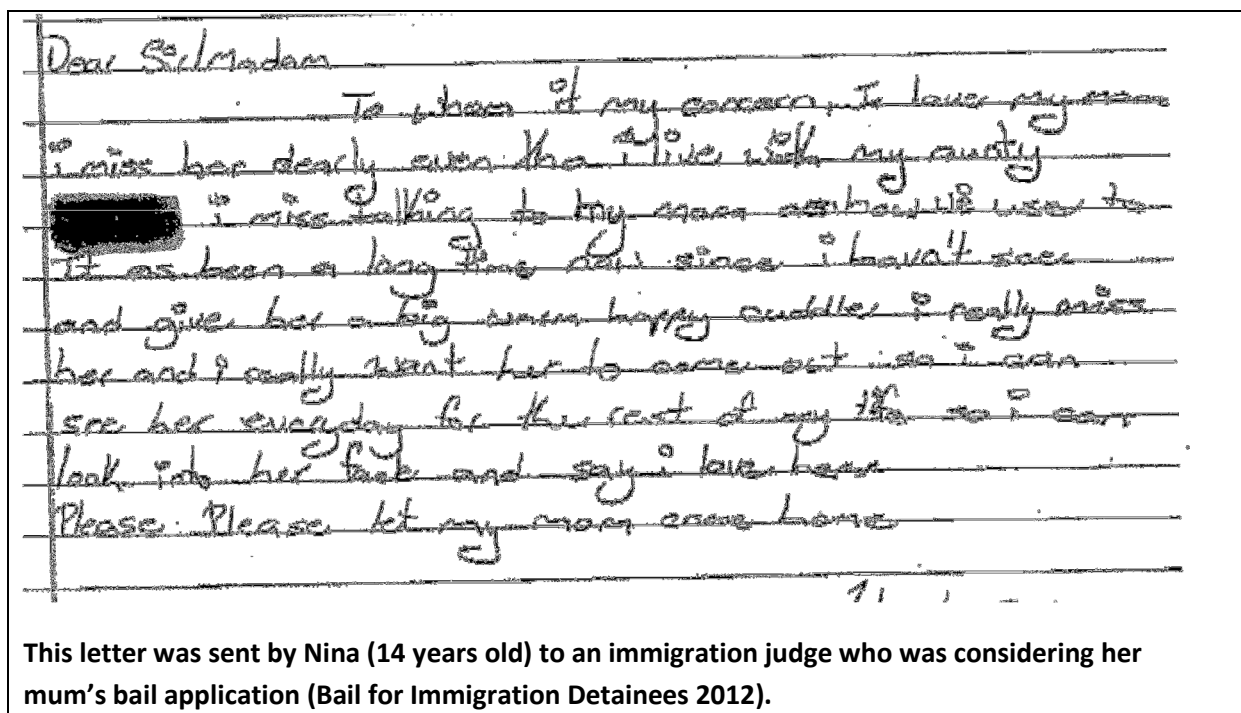 Dear Sir/Madam
To whom it my concern, I love my mom
i miss her dearly even tho i live with my aunty
i miss talking to my mom as how we use to
It as been a long time now since i havn't see
and give her a big warm happy cuddle i really miss
her and i really want her to come out so i can
see her everyday for the rest of my life so i can
look into her face and say i love her
Please Please let my mom come home
This letter was sent by Nina (14 years old) to an immigration judge who was considering her
mum's bail application (Bail for Immigration Detainees 2012).